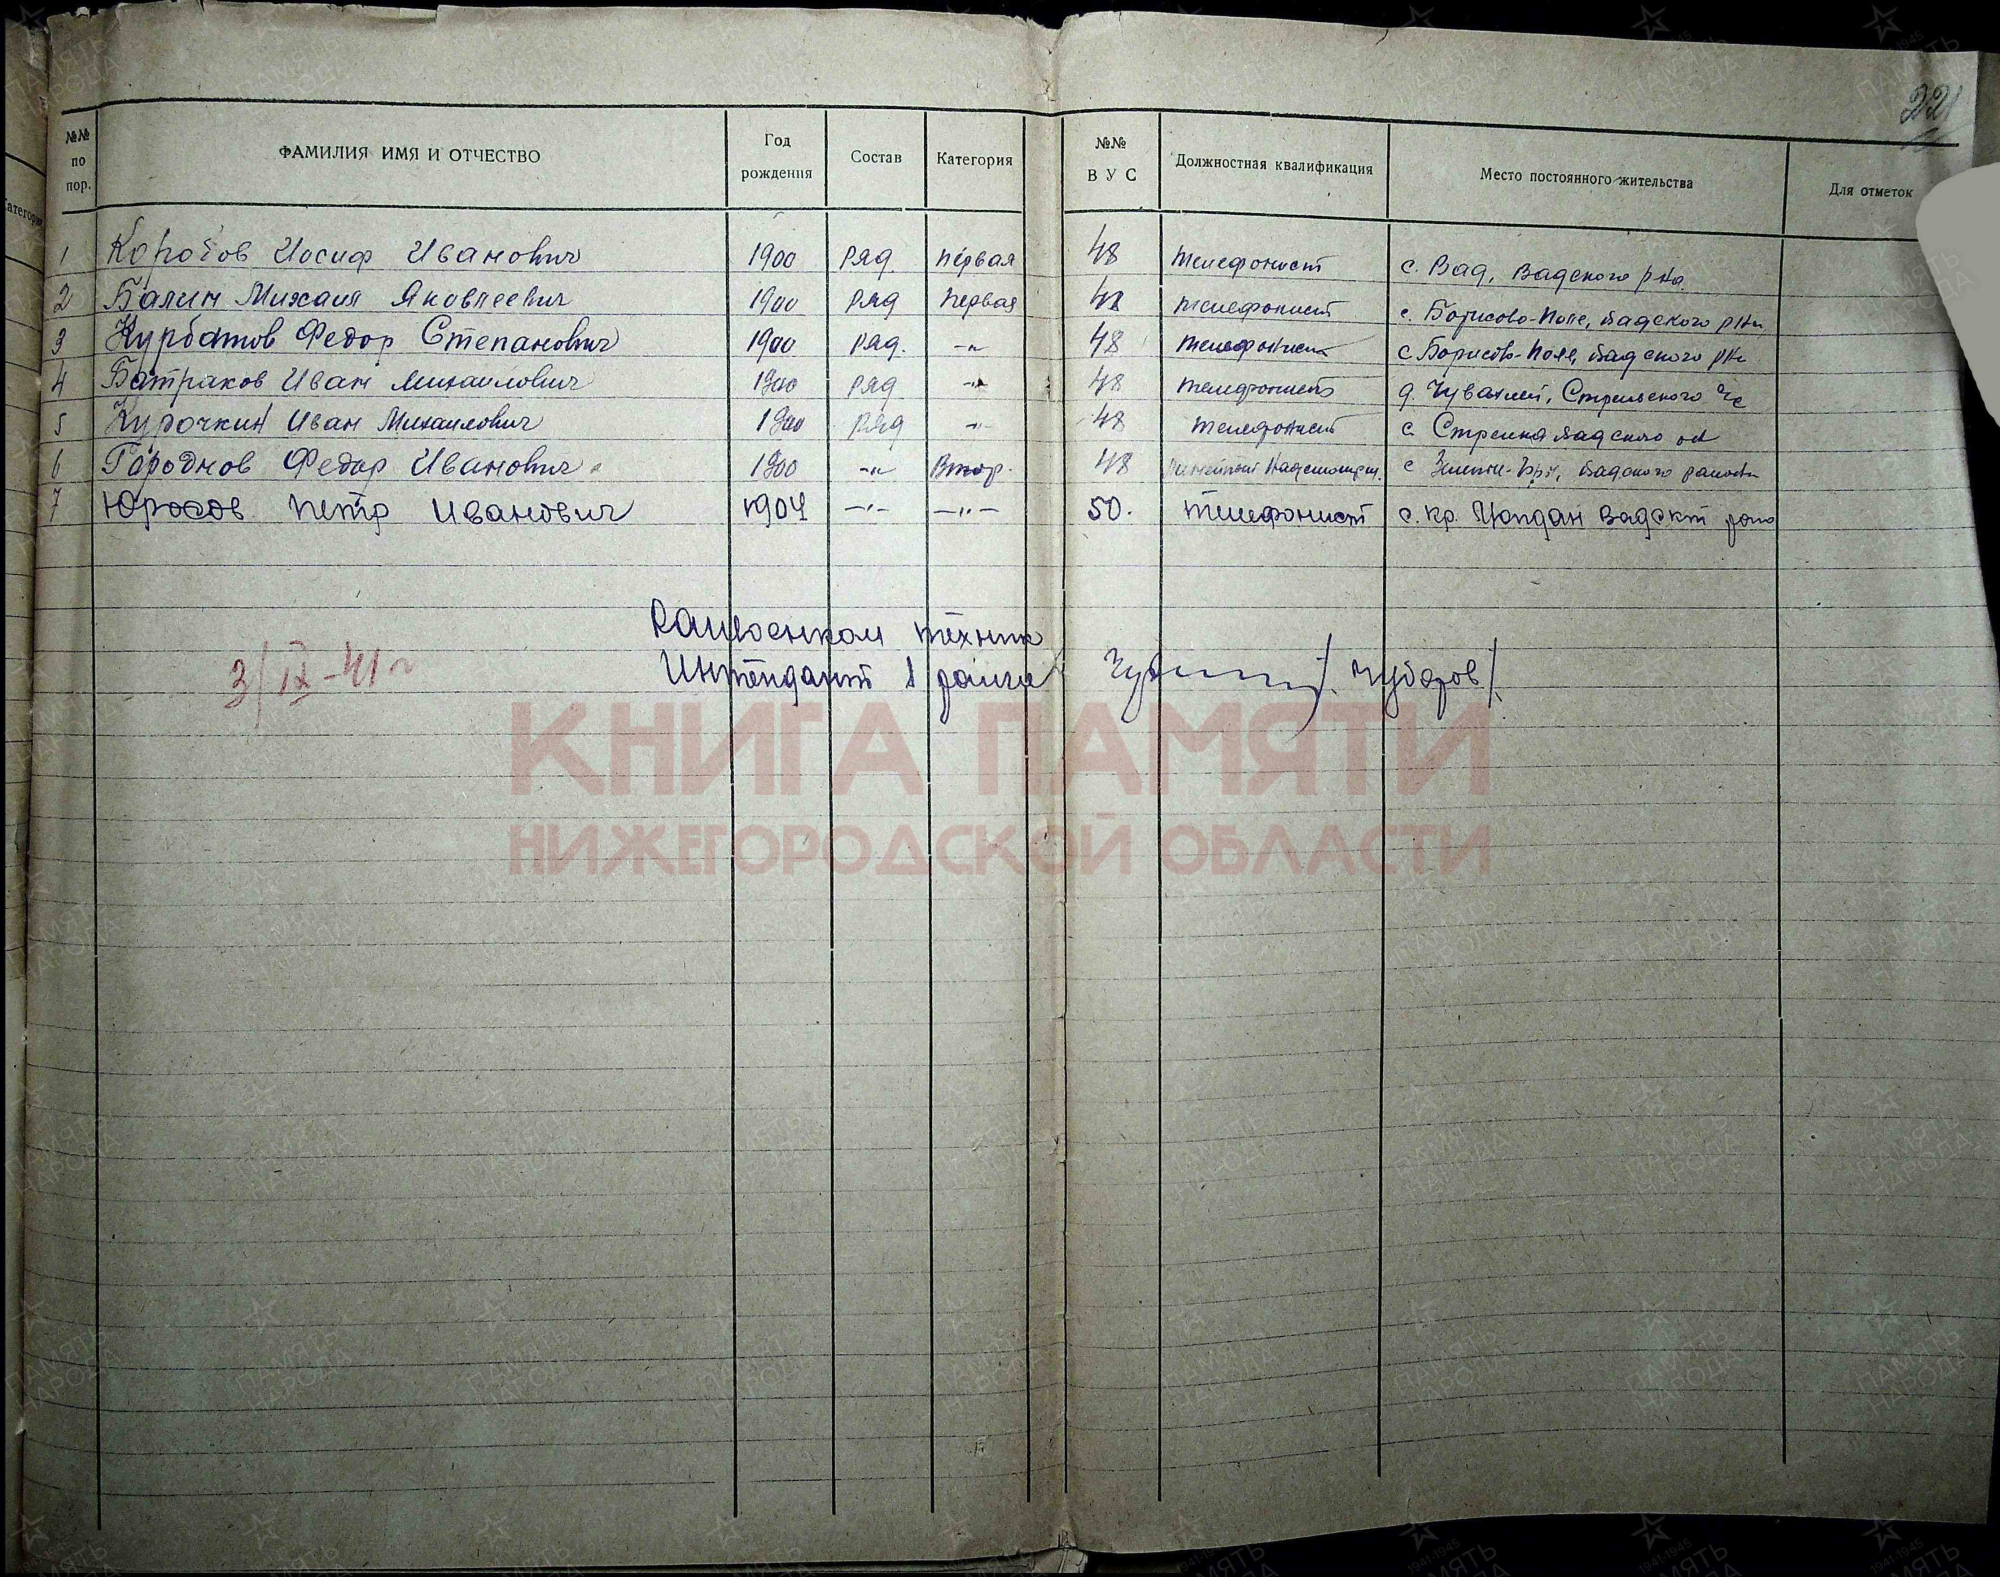 221
№№ по пор. ФАМИЛИЯ ИМЯ И ОТЧЕСТВО Год рождения Состав Категория №№ В У С Должностная квалификация Место постоянного жительства Для отметок
1 Коробов Иосиф Иванович 1900 Ряд. первая 48 телефонист с. Вад, Вадского р-на
2 Балин Михаил Яковлевич 1900 Ряд первая 48 телефонист с. Борисово-Поле, Вадского р-на
3 Курбатов Федор Степанович 1900 Ряд. -"- 48 телефонист с Борисово-Поле, Вадского р-на
4 Батраков Иван Михаилович 1900 Ряд -"- 48 телефонист д. Чувахлей, Стрельского
5 Курочкин Иван Михаилович 1900 Ряд -"- 48 телефонист с. Стрелка Вадского
6 Городнов Федор Иванович 1900 -"- Втор. 48 с Вадского района
7 Юросов Петр Иванович 1904 -"- -"- 50. телефонист с. Кр. Вадск
Райвоенком техник
3/IX-41 г Интендант 1 ранга / Чубаров /
КНИГА ПАМЯТИ
НИЖЕГОРОДСКОЙ ОБЛАСТИ
ПАМЯТЬ НАРОДА
1941-1945